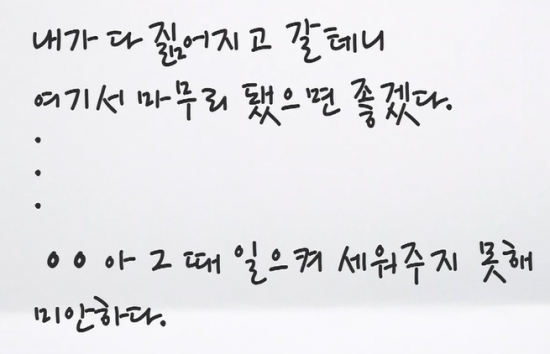 내가 다 짊어지고 갈테니
여기서 마무리 됐으면 좋겠다.
.
.
.
ㅇㅇ아 그때 일으켜 세워주지 못해
미안하다.